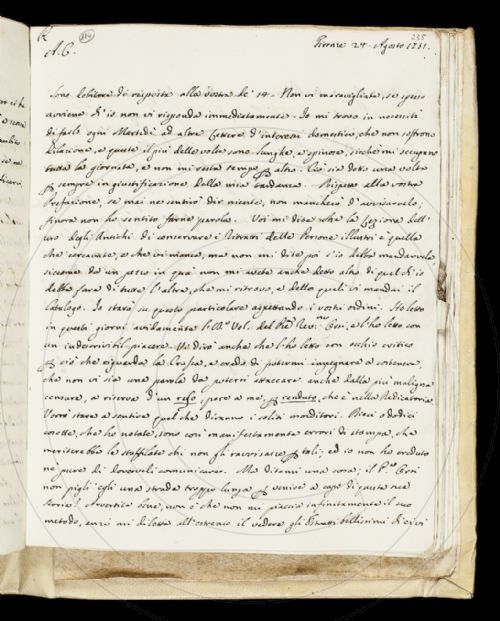 A. C.
235
Firenze 24. Agosto 1751.
Sono debitore di risposta alla vostra de' 14. Non vi maravigliate, se spesso
avviene ch'io non vi risponda immediatamente. Io mi trovo in necessità
di farlo ogni Martedì ad altre Lettere d'interessi domestici, che non soffrono
dilazione, e queste il più delle volte sono lunghe, e spinose, sicchè mi occupano
tutta la giornata, e non mi resta tempo per altro. Ciò sia detto una volta
per sempre in giustificazione della mia tardanza. Rispetto alla vostra
Prefazione, se mai ne sentirò dir niente, non mancherò d'avvisarvelo;
finora non ho sentito farne parola. Voi mi dite che la Lezione dell'
uso degli Antichi di conservare i Ritratti delle Persone illustri è quella
che cercavate, e che vi manca, ma non mi dite poi s'io debba mandarvela
siccome da un pezzo in quà non mi avete anche detto altro di quel ch'io
debba fare di tutte l'altre, che mi ritrovo, e delle quali vi mandai il
Catalogo. Io starò su questo particolare aspettando i vostri ordini. Ho letto
in questi giorni avidamente l'
Vol. del
con
un indicibil piacere. Vi dirò anche che l'ho letto con occhio critico
per ciò che riguarda la Crusca, e credo di potermi impegnare a sostenere
che non vi sia una parola da potersi attaccare anche dalla più maligna
censura, a riserva d'un reso, pare a me, per renduto, che è nella Dedicatoria.
Vorrò stare a sentire quel che diranno i soliti morditori. Dieci o dodici
cosette, che ho notate, sono così manifestamente errori di stampa, che
meriterebbe le staffilate chi non gli ravvisasse per tali; ed io non ho creduto
ne pure di doverveli comunicare. Ma ditemi una cosa; il P.
non pigli egli una strada troppo lunga per venire a capo di questa sua
Storia? Avvertite bene, non è che non mi piaccia infinitamente il suo
metodo, anzi mi diletta all'estremo il vedere gli Estratti bellissimi di